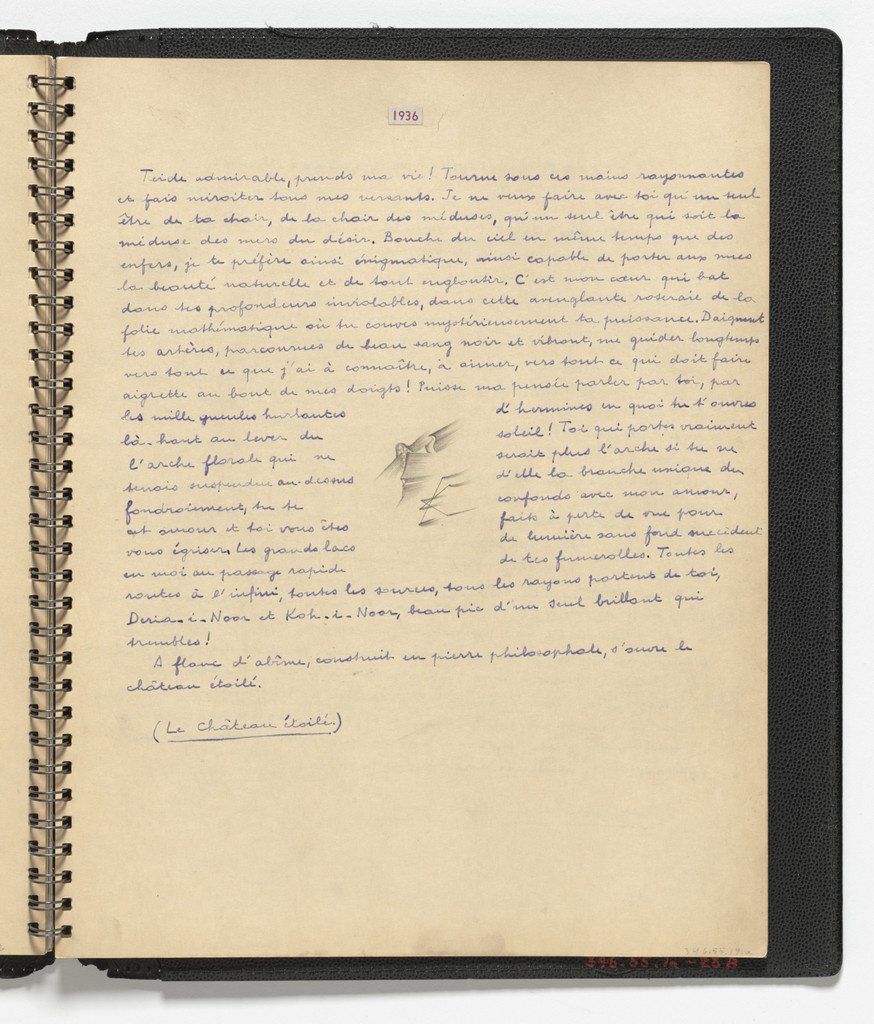 1936
Teide admirable, prends ma vie! Tourne sous ces mains rayonnantes
et fais miroiter tous mes versants. Je ne veux faire avec toi qu'un seul
être de ta chair, de la chair des méduses, qu'un seul être qui soit la
méduse des mers du désir. Bouche du ciel en même temps que des
enfers, je te préfère ainsi énigmatique, ainsi capable de porter aux nues
la beauté naturelle et de tout engloutir. C'est mon cœur qui bat
dans tes profondeurs inviolables, dans cette aveuglante roseraie de la
folie mathématique où tu couves mystérieusement ta puissance. Daignent
tes artères, parcourues de beau sang noir et vibrant, me guider longtemps
vers tout ce que j'ai à connaître, à aimer, vers tout ce qui doit faire
aigrette au bout de mes doigts! Puisse ma pensée parler par toi, par
les mille gueules hurlantes d'hermines en quoi tu t'ouvres
là-haut au lever du soleil! Toi qui portes vraiment
l'arche florale qui ne serait plus l'arche si tu ne
tenais suspendue au-dessus d'elle la branche unique du
foudroiement, tu te confonds avec mon amour,
cet amour et toi vous êtes faits à perte de vue pour
vous égriser. Les grands lacs de lumière sans fond succèdent
en moi au passage rapide de tes fumerolles. Toutes les
routes à l'infini, toutes les sources, tous les rayons partent de toi,
Deria-i-Noor et Koh-i-Noor, beau pic d'un seul brillant qui
trembles!
A flanc d'abîme, construit en pierre philosophale, s'ouvre le
château étoilé.
(Le Château étoilé.)